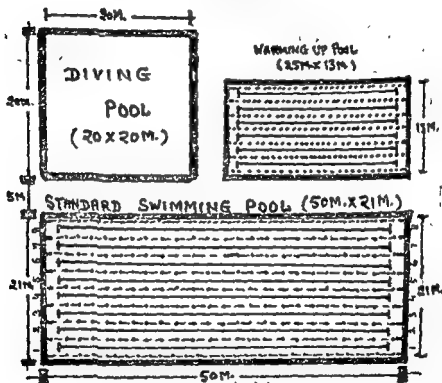 20M.
DIVING
POOL
(20 X 20M.)
20M.
WARMING UP POOL
(25M. X 13M.)
13M.
5M
STANDARD SWIMMING POOL (50M. X 21M.)
21M
21M.
50M.